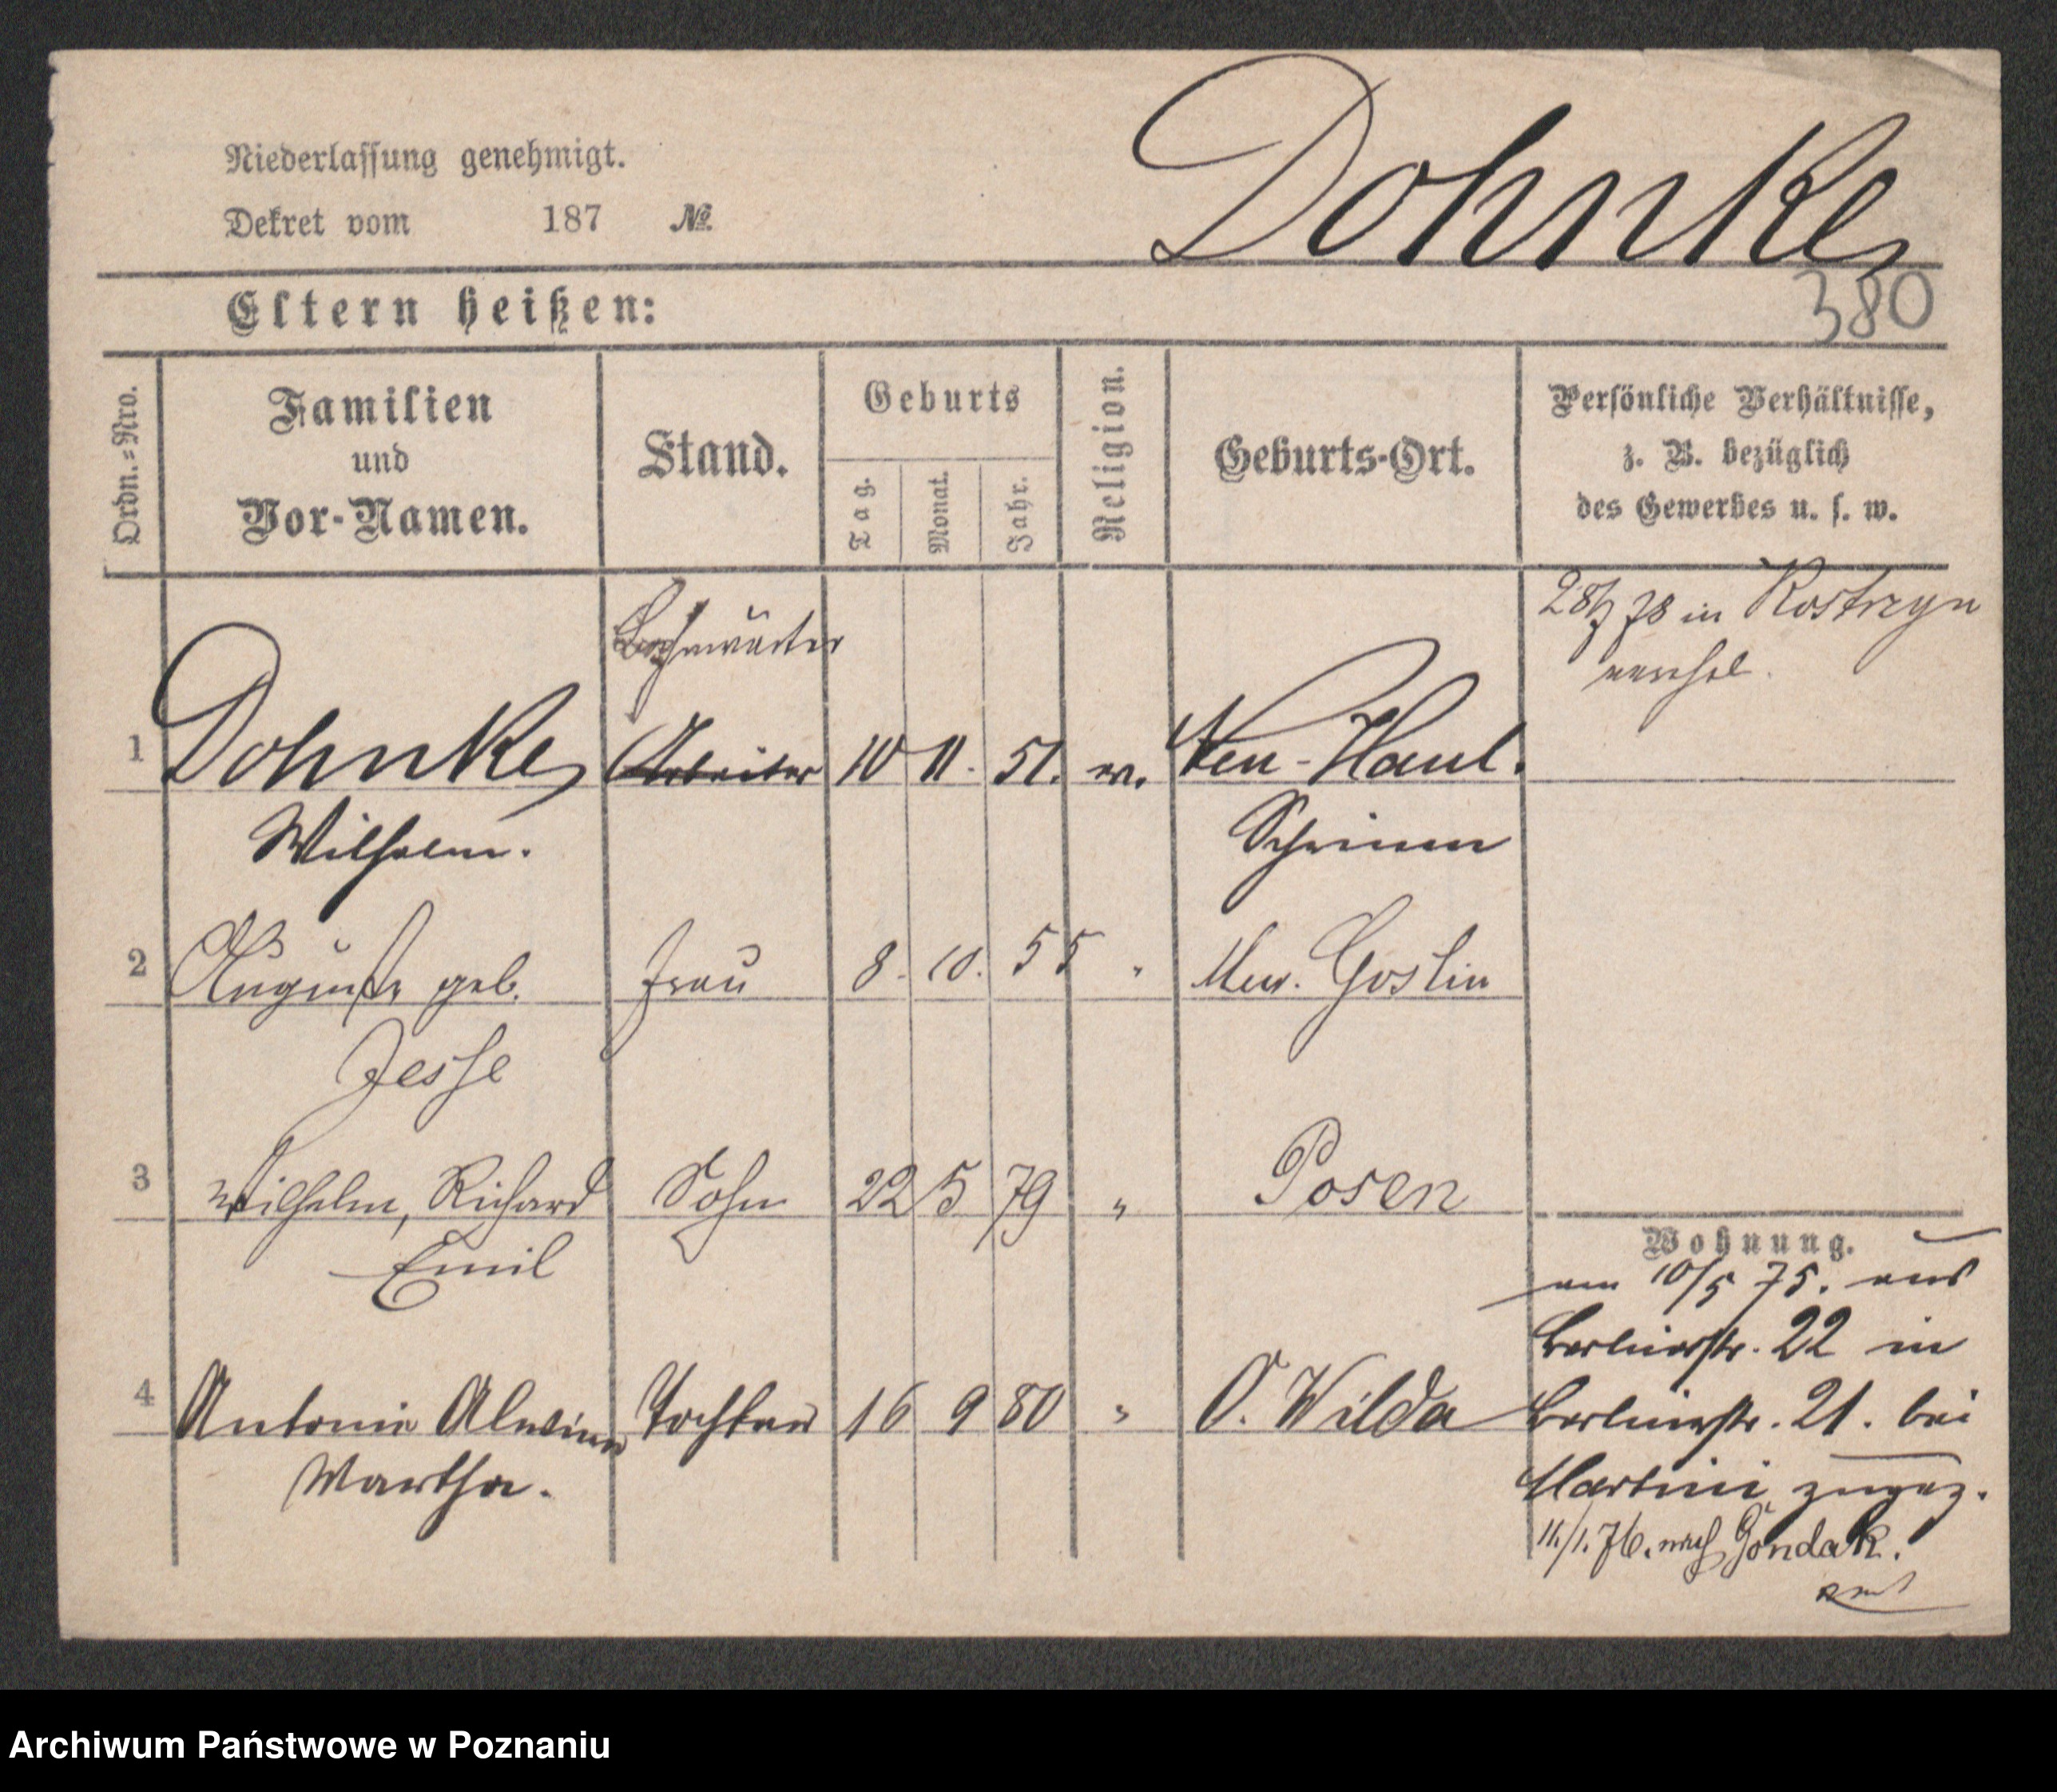 Niederlassung genehmigt.
Dekret vom 187 №
Dohnke
380
Eltern heißen:
Ordn.-Nro.
Familien und Vor-Namen.
Stand.
Geburts
Tag.
Monat.
Jahr.
Religion.
Geburts-Ort.
Persönliche Verhältnisse,
z. B. bezüglich
des Gewerbes u. s. w.
28/7 78 in Kostrzyn
Bahnwärter
1 Dohnke Arbeiter 10 11. 51. ev. Neu-Haul.
Wilhelm. Schrimm
2 Auguste geb. Frau 8. 10. 55 " Mur. Goslin
Jesse
3 Wilhelm, Richard Sohn 22 5 79 " Posen
Emil
4 Antonie Alwine Tochter 16 9 80 " O. Wilda
Martha.
Wohnung.
am 10/5 75. aus
Berlinerstr. 22 in
Berlinerstr. 21. bei
Martini zugez.
11./1. 76. nach Gondek.
Archiwum Państwowe w Poznaniu